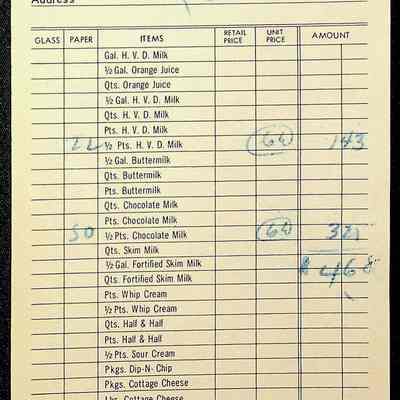 Address
GLASS PAPER ITEMS RETAIL PRICE UNIT PRICE AMOUNT
Gal. H. V. D. Milk
½ Gal. Orange Juice
Qts. Orange Juice
½ Gal. H. V. D. Milk
Qts. H. V. D. Milk
Pts. H. V. D. Milk
22 ½ Pts. H. V. D. Milk 6½ 143
½ Gal. Buttermilk
Qts. Buttermilk
Pts. Buttermilk
Qts. Chocolate Milk
Pts. Chocolate Milk
50 ½ Pts. Chocolate Milk 6½ 325
Qts. Skim Milk
½ Gal. Fortified Skim Milk $ 468
Qts. Fortified Skim Milk
Pts. Whip Cream
½ Pts. Whip Cream
Qts. Half & Half
Pts. Half & Half
½ Pts. Sour Cream
Pkgs. Dip-N-Chip
Pkgs. Cottage Cheese
Lbs. Cottage Cheese